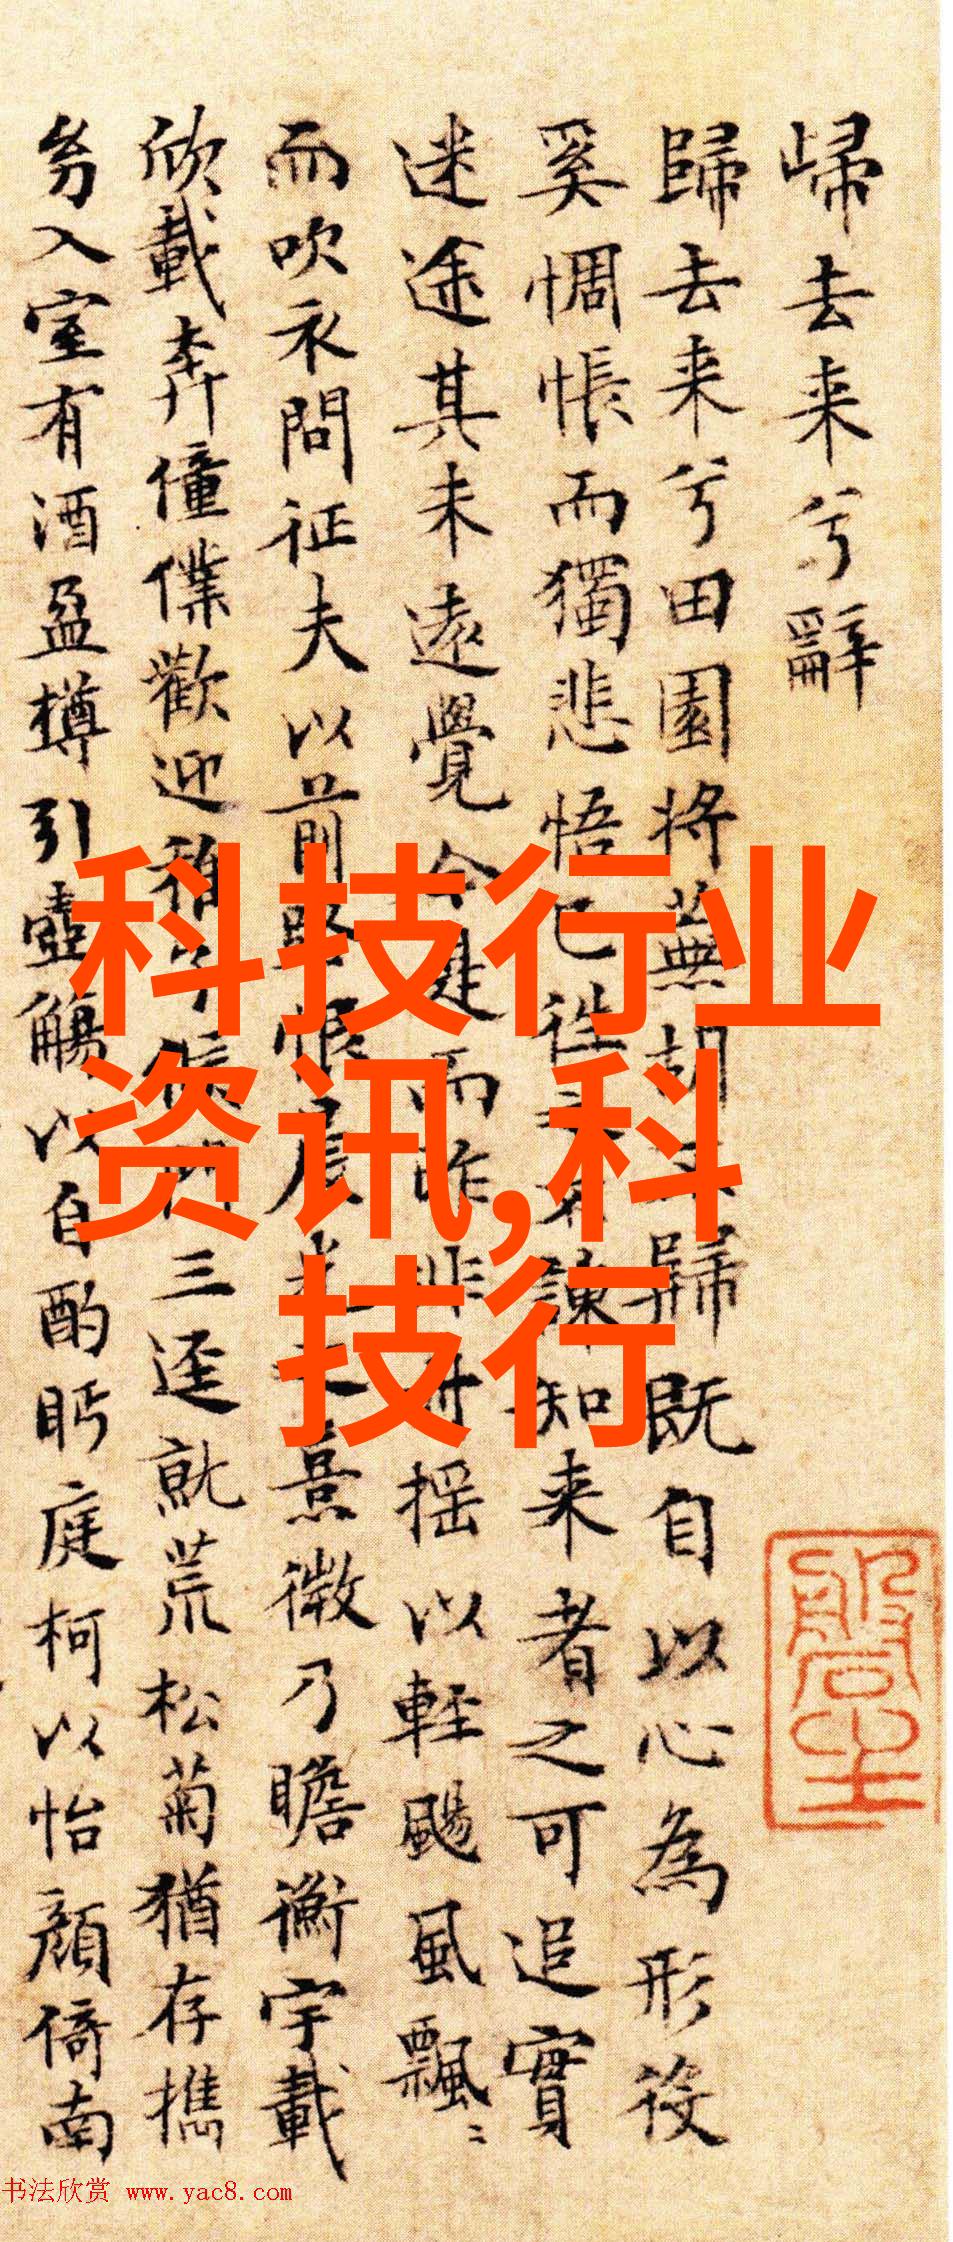 歸去来兮辭
歸去来兮田園将蕪胡不歸既自以心為形役
奚惆悵而獨悲悟已往之不諫知来者之可追實
迷途其未遠覺今是而昨非舟摇以輕颺風飄〻
而吹衣問征夫以前路恨晨光之熹微乃瞻衡宇載
欣載奔僮僕歡迎稚子候門三逕就荒松菊猶存携
㓜入室有酒盈樽引壺觴以自酌眄庭柯以怡顔倚南
科技行业
资讯,科
技行
书法欣赏 www.yac8.com